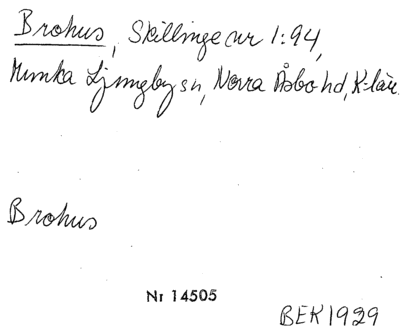 Brohus, Skillinge nr 1:94,
Munka Ljungby sn, Norra Åsbo hd, K-län.
Brohus
Nr 14505
BEK 1929